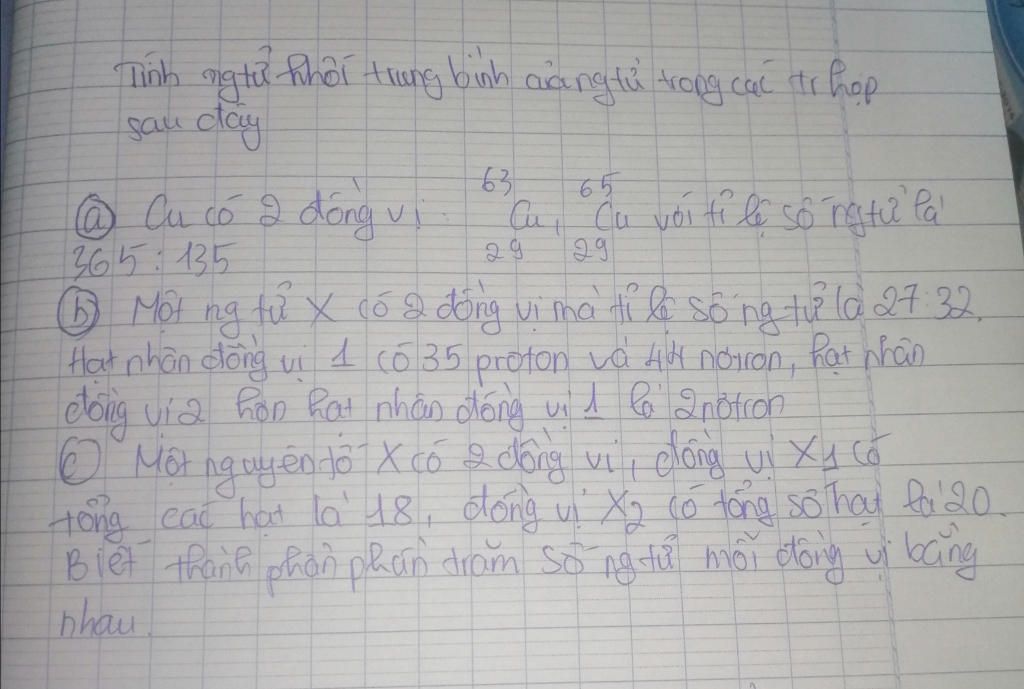 Tính ngtử khối trung bình của ngtử trong các tr hợp
sau đây
63 65
ⓐ Cu có 2 đồng vị Cu, Cu với tỉ lệ số ngtử là
365 : 135 29 29
ⓑ Một ng tử X có 2 đồng vị mà tỉ lệ số ng tử là 27:32.
Hạt nhân đồng vị 1 có 35 proton và 44 nơtron, hạt nhân
đồng vị 2 hơn hạt nhân đồng vị 1 là 2 nơtron
ⓒ Một nguyên tố X có 2 đồng vị, đồng vị X1 có
tổng các hạt là 18, đồng vị X2 có tổng số hạt là 20.
Biết thành phần phần trăm số ng tử mỗi đồng vị bằng
nhau.